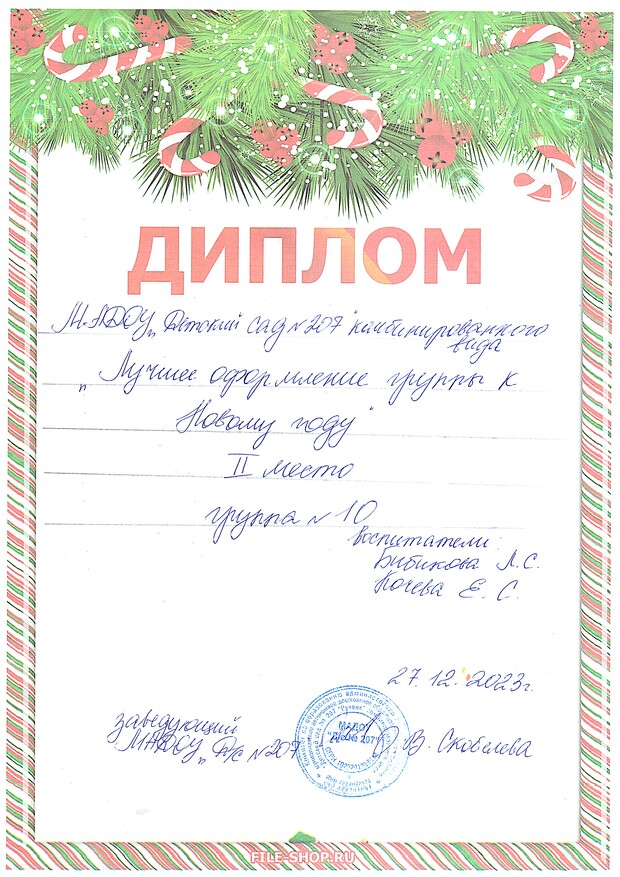 ДИПЛОМ
МАДОУ „Детский сад №207" комбинированного
вида
„Лучшее оформление группы к
Новому году"
II место
группа №10
воспитатели:
Бибикова Л.С.
Кочева Е.С.
27.12.2023г.
заведующий
МАДОУ „Д/с №207
МАДОУ
"Д/с № 207"
В. Скобелева
FILE-SHOP.RU